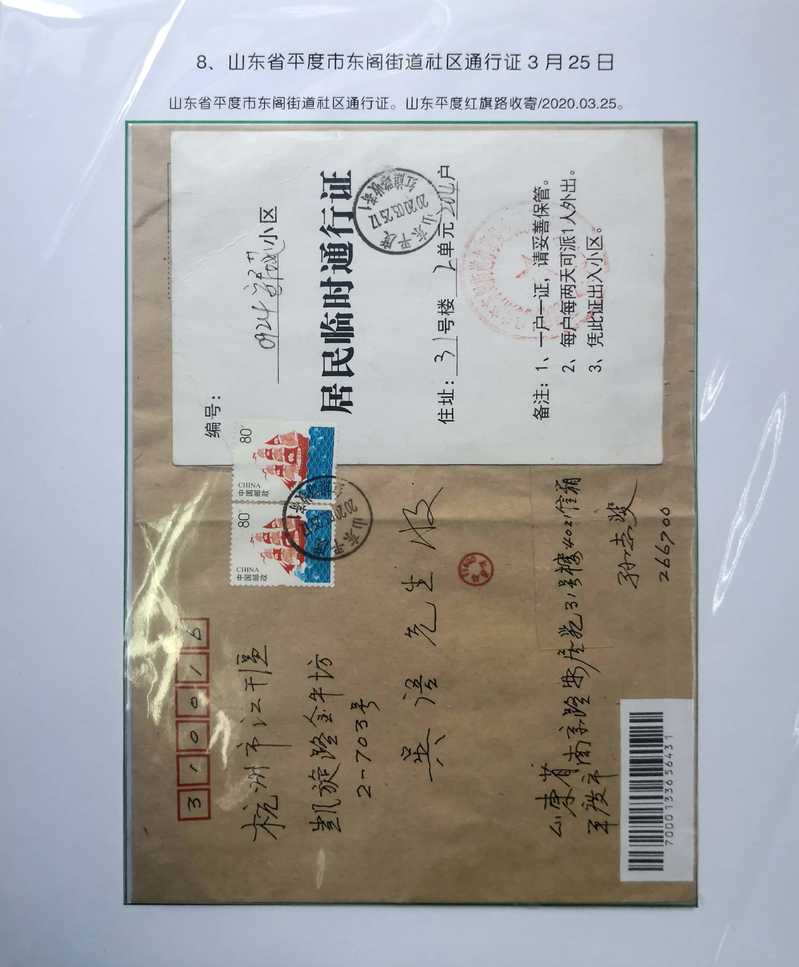 8、山东省平度市东阁街道社区通行证3月25日
山东省平度市东阁街道社区通行证。山东平度红旗路收寄/2020.03.25。
编号：
小区
居民临时通行证
住址：31号楼 单元 户
备注：1、一户一证，请妥善保管。
2、每户每两天可派1人外出。
3、凭此证出入小区。
山东平度
2020.03.25.17
红旗路收寄1
80分
CHINA
中国邮政
80分
CHINA
中国邮政
310016
杭州市江干区
凯旋路金牛坊
2-703号
吴语先生收
山东省
平度市
南京路
31号楼402信箱
266700
7000133636431